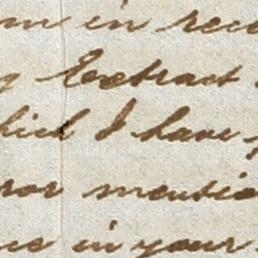 in rece
Extract
hich I have
ror mentio
in your